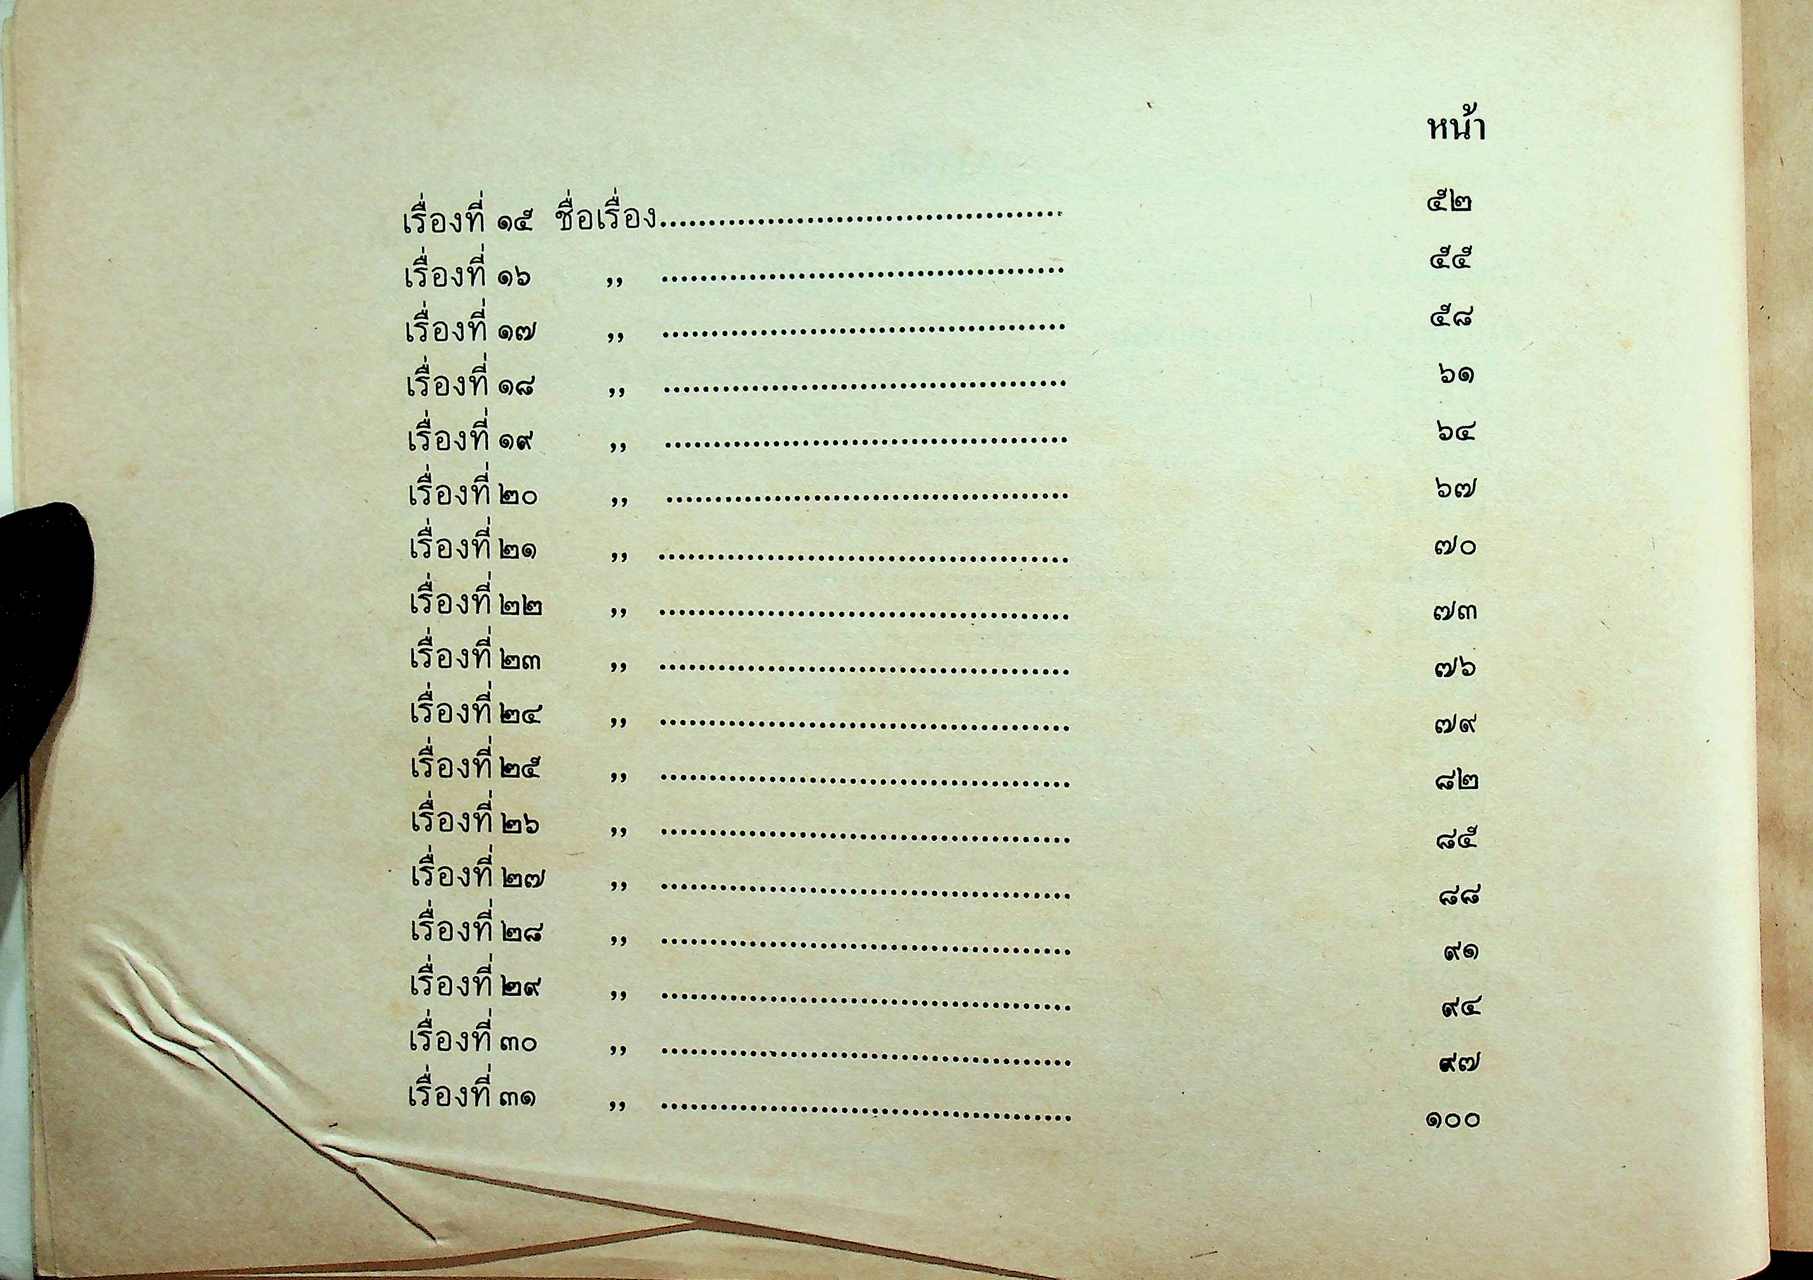 หน้า
เรื่องที่ ๑๕ ชื่อเรื่อง......................................... ๕๒
เรื่องที่ ๑๖ ,, ......................................... ๕๕
เรื่องที่ ๑๗ ,, ......................................... ๕๘
เรื่องที่ ๑๘ ,, ......................................... ๖๑
เรื่องที่ ๑๙ ,, ......................................... ๖๔
เรื่องที่ ๒๐ ,, ......................................... ๖๗
เรื่องที่ ๒๑ ,, ......................................... ๗๐
เรื่องที่ ๒๒ ,, ......................................... ๗๓
เรื่องที่ ๒๓ ,, ......................................... ๗๖
เรื่องที่ ๒๔ ,, ......................................... ๗๙
เรื่องที่ ๒๕ ,, ......................................... ๘๒
เรื่องที่ ๒๖ ,, ......................................... ๘๕
เรื่องที่ ๒๗ ,, ......................................... ๘๘
เรื่องที่ ๒๘ ,, ......................................... ๙๑
เรื่องที่ ๒๙ ,, ......................................... ๙๔
เรื่องที่ ๓๐ ,, ......................................... ๙๗
เรื่องที่ ๓๑ ,, ......................................... ๑๐๐